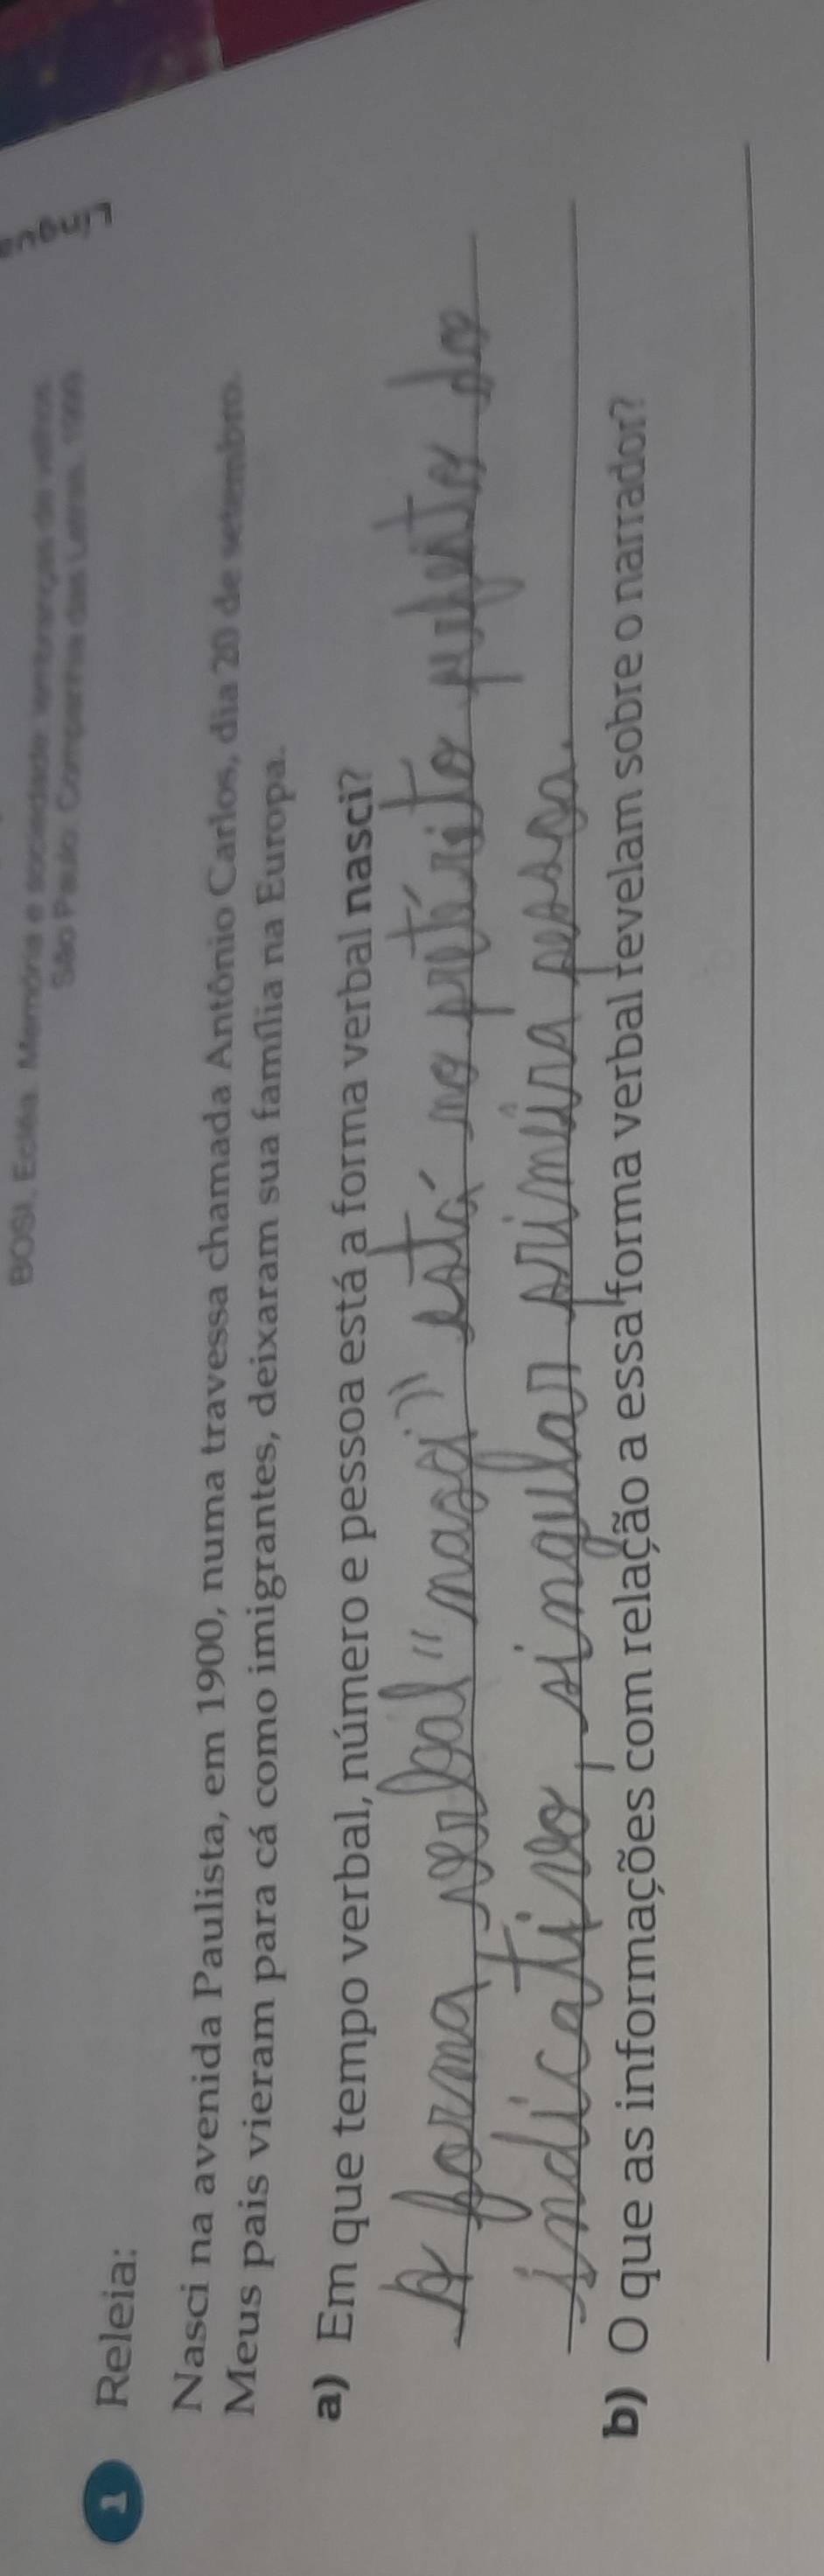 Língua
BOSI, Ecléa. Memória e sociedade: lembranças de velhos.
São Paulo: Companhia das Letras, 1999.
1 Releia:
Nasci na avenida Paulista, em 1900, numa travessa chamada Antônio Carlos, dia 20 de setembro.
Meus pais vieram para cá como imigrantes, deixaram sua família na Europa.
a) Em que tempo verbal, número e pessoa está a forma verbal nasci?
A forma verbal "nasci" está no pretérito perfeito do
indicativo, singular primeira pessoa.
b) O que as informações com relação a essa forma verbal revelam sobre o narrador?